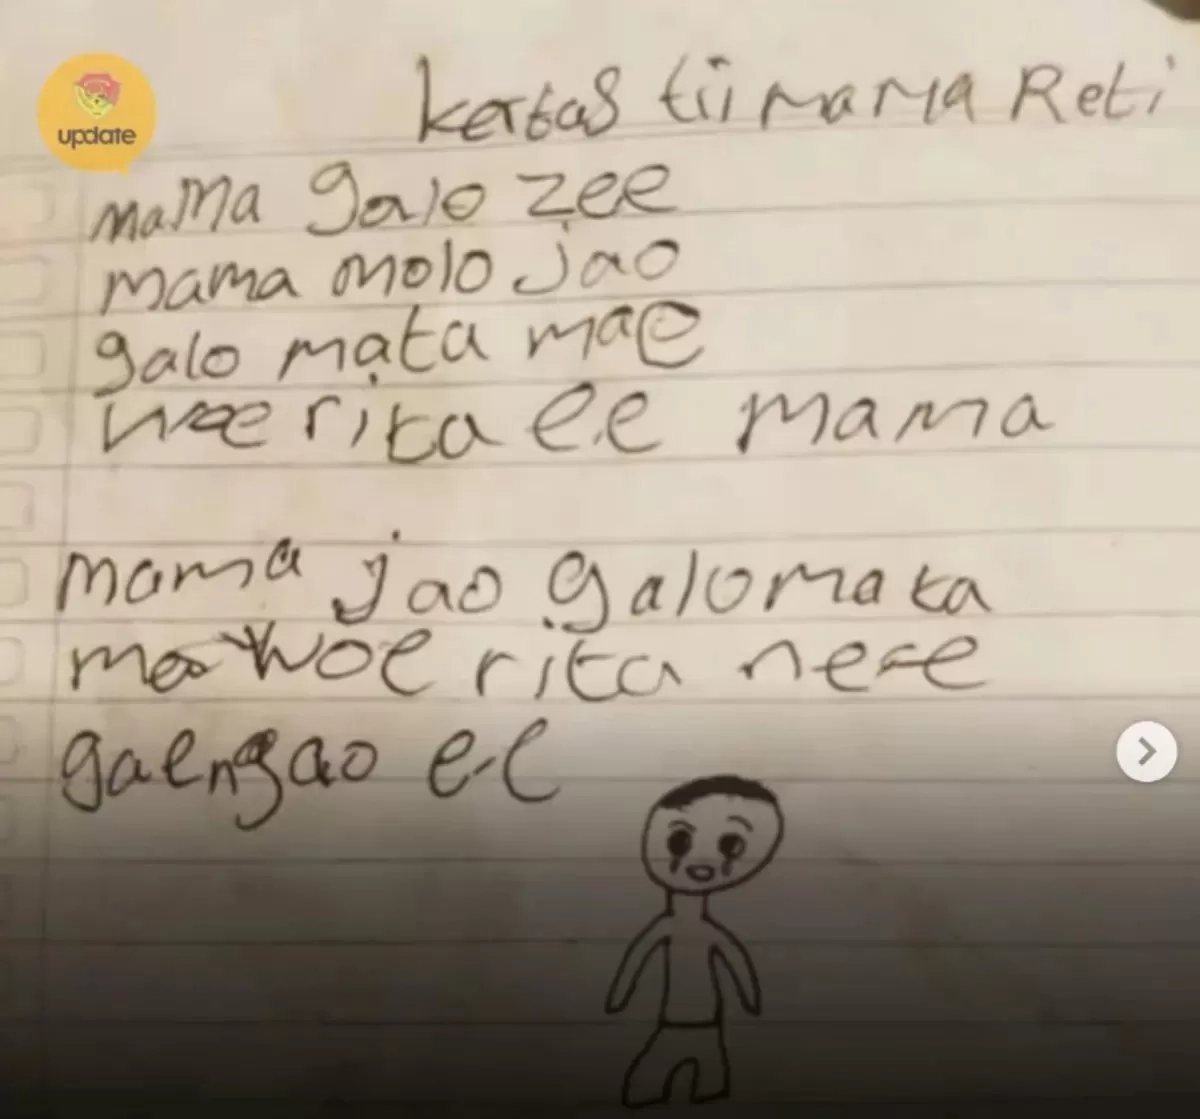 update
kertas tii mama Reti
mama galo zee
mama molo jao
galo mata mae
woe rita ee mama
mama jao galo mata
mae woe rita ne'e
gaengao ee